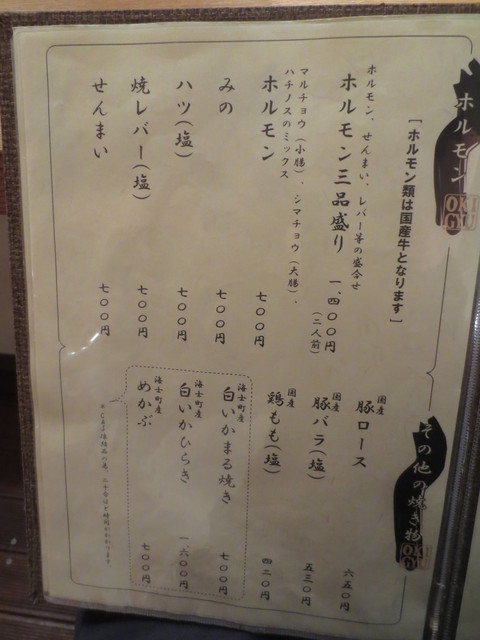 ホルモン
OKI
GYU
[ホルモン類は国産牛となります]
ホルモン、せんまい、レバー等の盛合せ
ホルモン三品盛り
一、四〇〇円
(二人前)
マルチョウ(小腸)、シマチョウ(大腸)、
ハチノスのミックス
ホルモン
七〇〇円
みの
七〇〇円
ハツ(塩)
七〇〇円
焼レバー(塩)
七〇〇円
せんまい
七〇〇円
その他の焼き物
OKI
GYU
国産
豚ロース
六五〇円
国産
豚バラ(塩)
五三〇円
国産
鶏もも(塩)
四二〇円
海士町産
白いかまる焼き
七〇〇円
海士町産
白いかひらき
一、六〇〇円
海士町産
めかぶ
七〇〇円